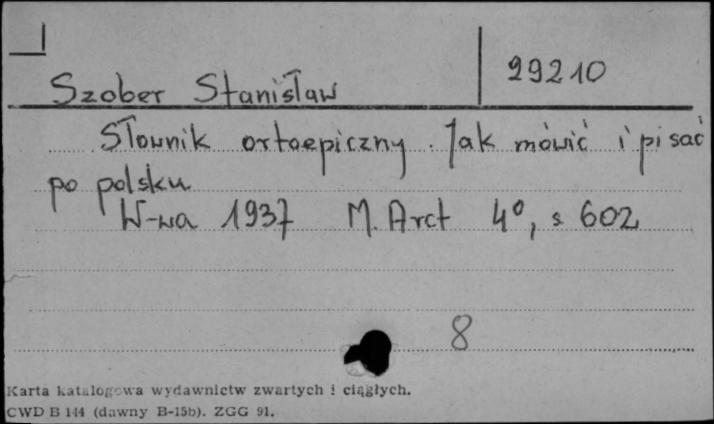 Szober Stanisław
29210
Słownik ortoepiczny. Jak mówić i pisać
po polsku
W-wa 1937 M. Arct 4°, s 602
8
Karta katalogowa wydawnictw zwartych i ciągłych.
CWD B 144 (dawny B-15b). ZGG 91.